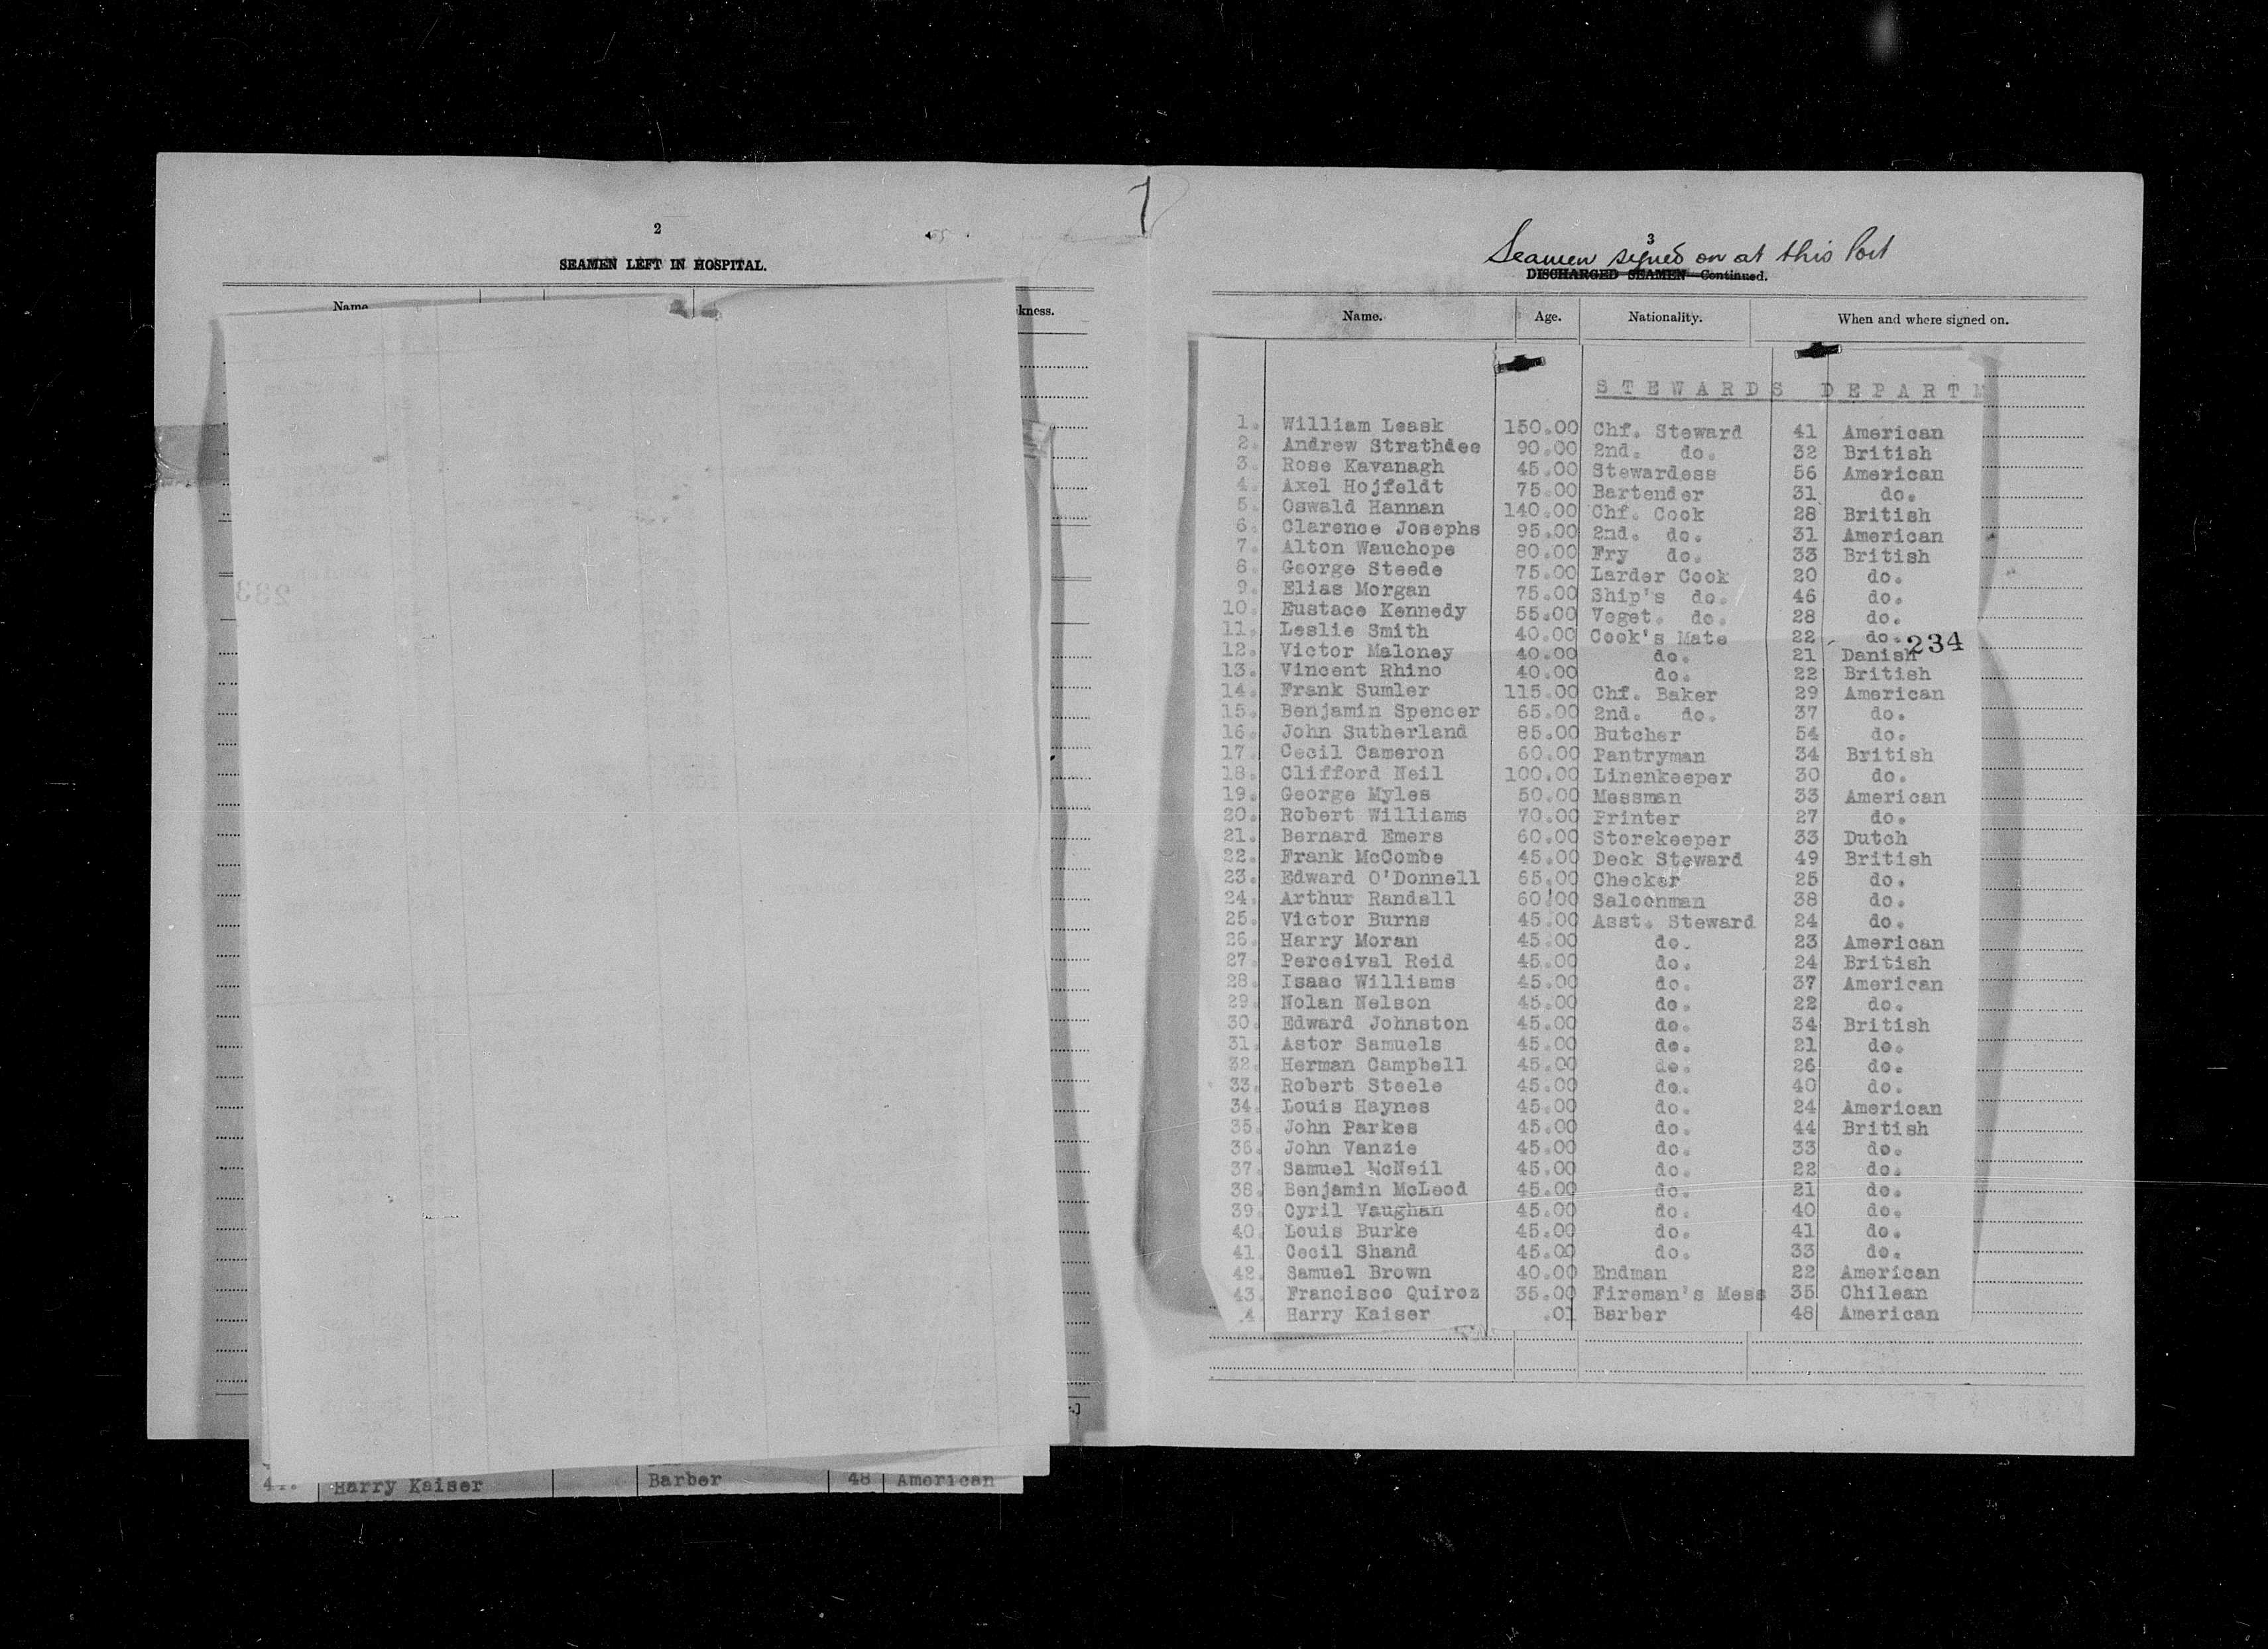 2
SEAMEN LEFT IN HOSPITAL.
Name
kness.
Harry Kaiser Barber 48 American
3
Seamen signed on at this Port
DISCHARGED SEAMEN—Continued.
Name. Age. Nationality. When and where signed on.
STEWARDS DEPARTM
1. William Leask 150.00 Chf. Steward 41 American
2. Andrew Strathdee 90.00 2nd. do. 32 British
3. Rose Kavanagh 45.00 Stewardess 56 American
4. Axel Hojfeldt 75.00 Bartender 31 do.
5. Oswald Hannan 140.00 Chf. Cook 28 British
6. Clarence Josephs 95.00 2nd. do. 31 American
7. Alton Wauchope 80.00 Fry do. 33 British
8. George Steede 75.00 Larder Cook 20 do.
9. Elias Morgan 75.00 Ship's do. 46 do.
10. Eustace Kennedy 55.00 Veget. do. 28 do.
11. Leslie Smith 40.00 Cook's Mate 22 do.
234
12. Victor Maloney 40.00 do. 21 Danish
13. Vincent Rhino 40.00 do. 22 British
14. Frank Sumler 115.00 Chf. Baker 29 American
15. Benjamin Spencer 65.00 2nd. do. 37 do.
16. John Sutherland 85.00 Butcher 54 do.
17. Cecil Cameron 60.00 Pantryman 34 British
18. Clifford Neil 100.00 Linenkeeper 30 do.
19. George Myles 50.00 Messman 33 American
20. Robert Williams 70.00 Printer 27 do.
21. Bernard Emers 60.00 Storekeeper 33 Dutch
22. Frank McCombe 45.00 Deck Steward 49 British
23. Edward O'Donnell 65.00 Checker 25 do.
24. Arthur Randall 60.00 Saloonman 38 do.
25. Victor Burns 45.00 Asst. Steward 24 do.
26. Harry Moran 45.00 do. 23 American
27. Perceival Reid 45.00 do. 24 British
28. Isaac Williams 45.00 do. 37 American
29. Nolan Nelson 45.00 do. 22 do.
30. Edward Johnston 45.00 do. 34 British
31. Astor Samuels 45.00 do. 21 do.
32. Herman Campbell 45.00 do. 26 do.
33. Robert Steele 45.00 do. 40 do.
34. Louis Haynes 45.00 do. 24 American
35. John Parkes 45.00 do. 44 British
36. John Vanzie 45.00 do. 33 do.
37. Samuel McNeil 45.00 do. 22 do.
38. Benjamin McLeod 45.00 do. 21 do.
39. Cyril Vaughan 45.00 do. 40 do.
40. Louis Burke 45.00 do. 41 do.
41. Cecil Shand 45.00 do. 33 do.
42. Samuel Brown 40.00 Endman 22 American
43. Francisco Quiroz 35.00 Fireman's Mess 35 Chilean
4. Harry Kaiser .01 Barber 48 American